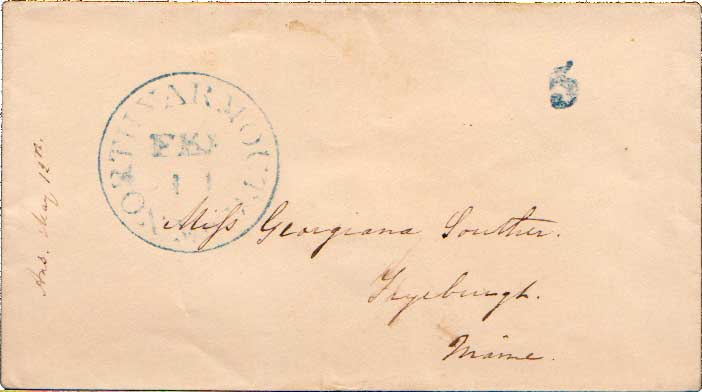 NORTH YARMOUTH
FEB
11
5
Miss Georgiana Souther.
Fryeburgh.
Maine.
Ans. May 12th.